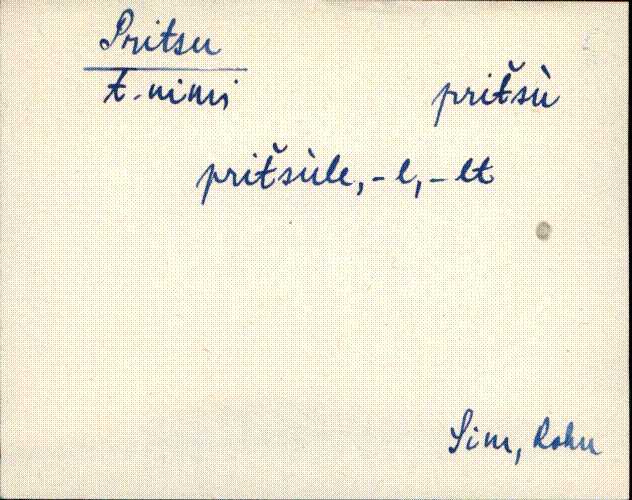 Pritsu
t. nimi
pritšù
pritšùle, -l, -lt
Sim, Rohu